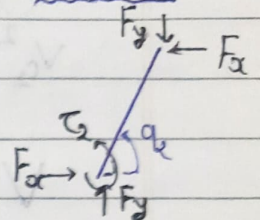 Fy
Fx
τ₂
q₂
Fx
Fy